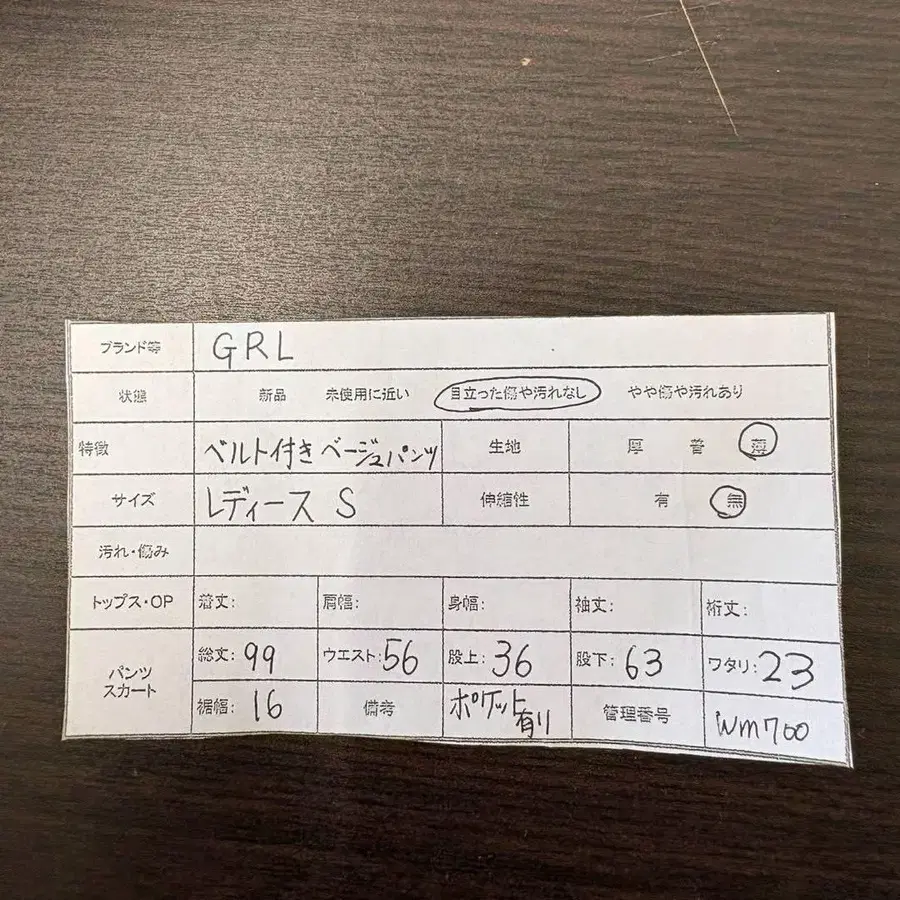 ブランド等 GRL
状態 新品 未使用に近い 目立った傷や汚れなし やや傷や汚れあり
特徴 ベルト付きベージュパンツ 生地 厚 普 薄
サイズ レディース S 伸縮性 有 無
汚れ・傷み
トップス・OP 着丈: 肩幅: 身幅: 袖丈: 裄丈:
パンツ
スカート
総丈: 99 ウエスト: 56 股上: 36 股下: 63 ワタリ: 23
裾幅: 16 備考 ポケット
有り
管理番号 wm700